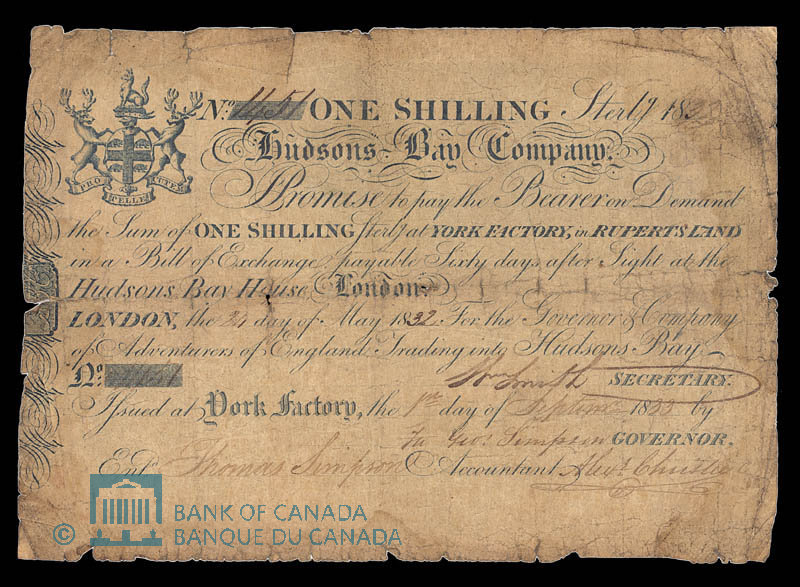 PRO PELLE CUTEM
No. 1451 ONE SHILLING Sterlg 18
Hudsons Bay Company.
Promise to pay the Bearer on Demand
the Sum of ONE SHILLING Sterlg at YORK FACTORY, in RUPERTS LAND
in a Bill of Exchange payable Sixty days after Sight at the
Hudsons Bay House London.
LONDON, the 24 day of May 1832. For the Governor & Company
of Adventurers of England Trading into Hudsons Bay
No.
Wm Smith SECRETARY.
Issued at York Factory, the 1st day of 1833 by
Geo. Simpson GOVERNOR.
Entd. Thomas Simpson Accountant Alexr. Christie
© BANK OF CANADA
BANQUE DU CANADA